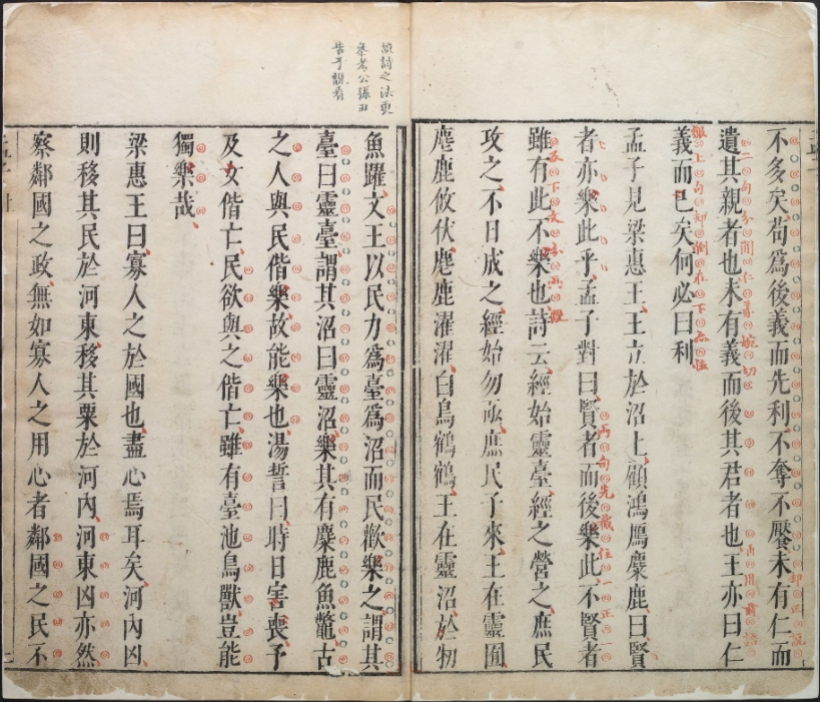 不多矣苟爲後義而先利不奪不饜未有仁而
遺其親者也未有義而後其君者也王亦曰仁
義而已矣何必曰利
孟子見梁惠王王立於沼上顧鴻鴈麋鹿曰賢
者亦樂此乎孟子對曰賢者而後樂此不賢者
雖有此不樂也詩云經始靈臺經之營之庶民
攻之不日成之經始勿亟庶民子來王在靈囿
麀鹿攸伏麀鹿濯濯白鳥鶴鶴王在靈沼於牣
說詩之法更
參考公孫丑
告子觀看
魚躍文王以民力爲臺爲沼而民歡樂之謂其
臺曰靈臺謂其沼曰靈沼樂其有麋鹿魚鼈古
之人與民偕樂故能樂也湯誓曰時日害喪予
及女偕亡民欲與之偕亡雖有臺池鳥獸豈能
獨樂哉
梁惠王曰寡人之於國也盡心焉耳矣河內凶
則移其民於河東移其粟於河內河東凶亦然
察鄰國之政無如寡人之用心者鄰國之民不